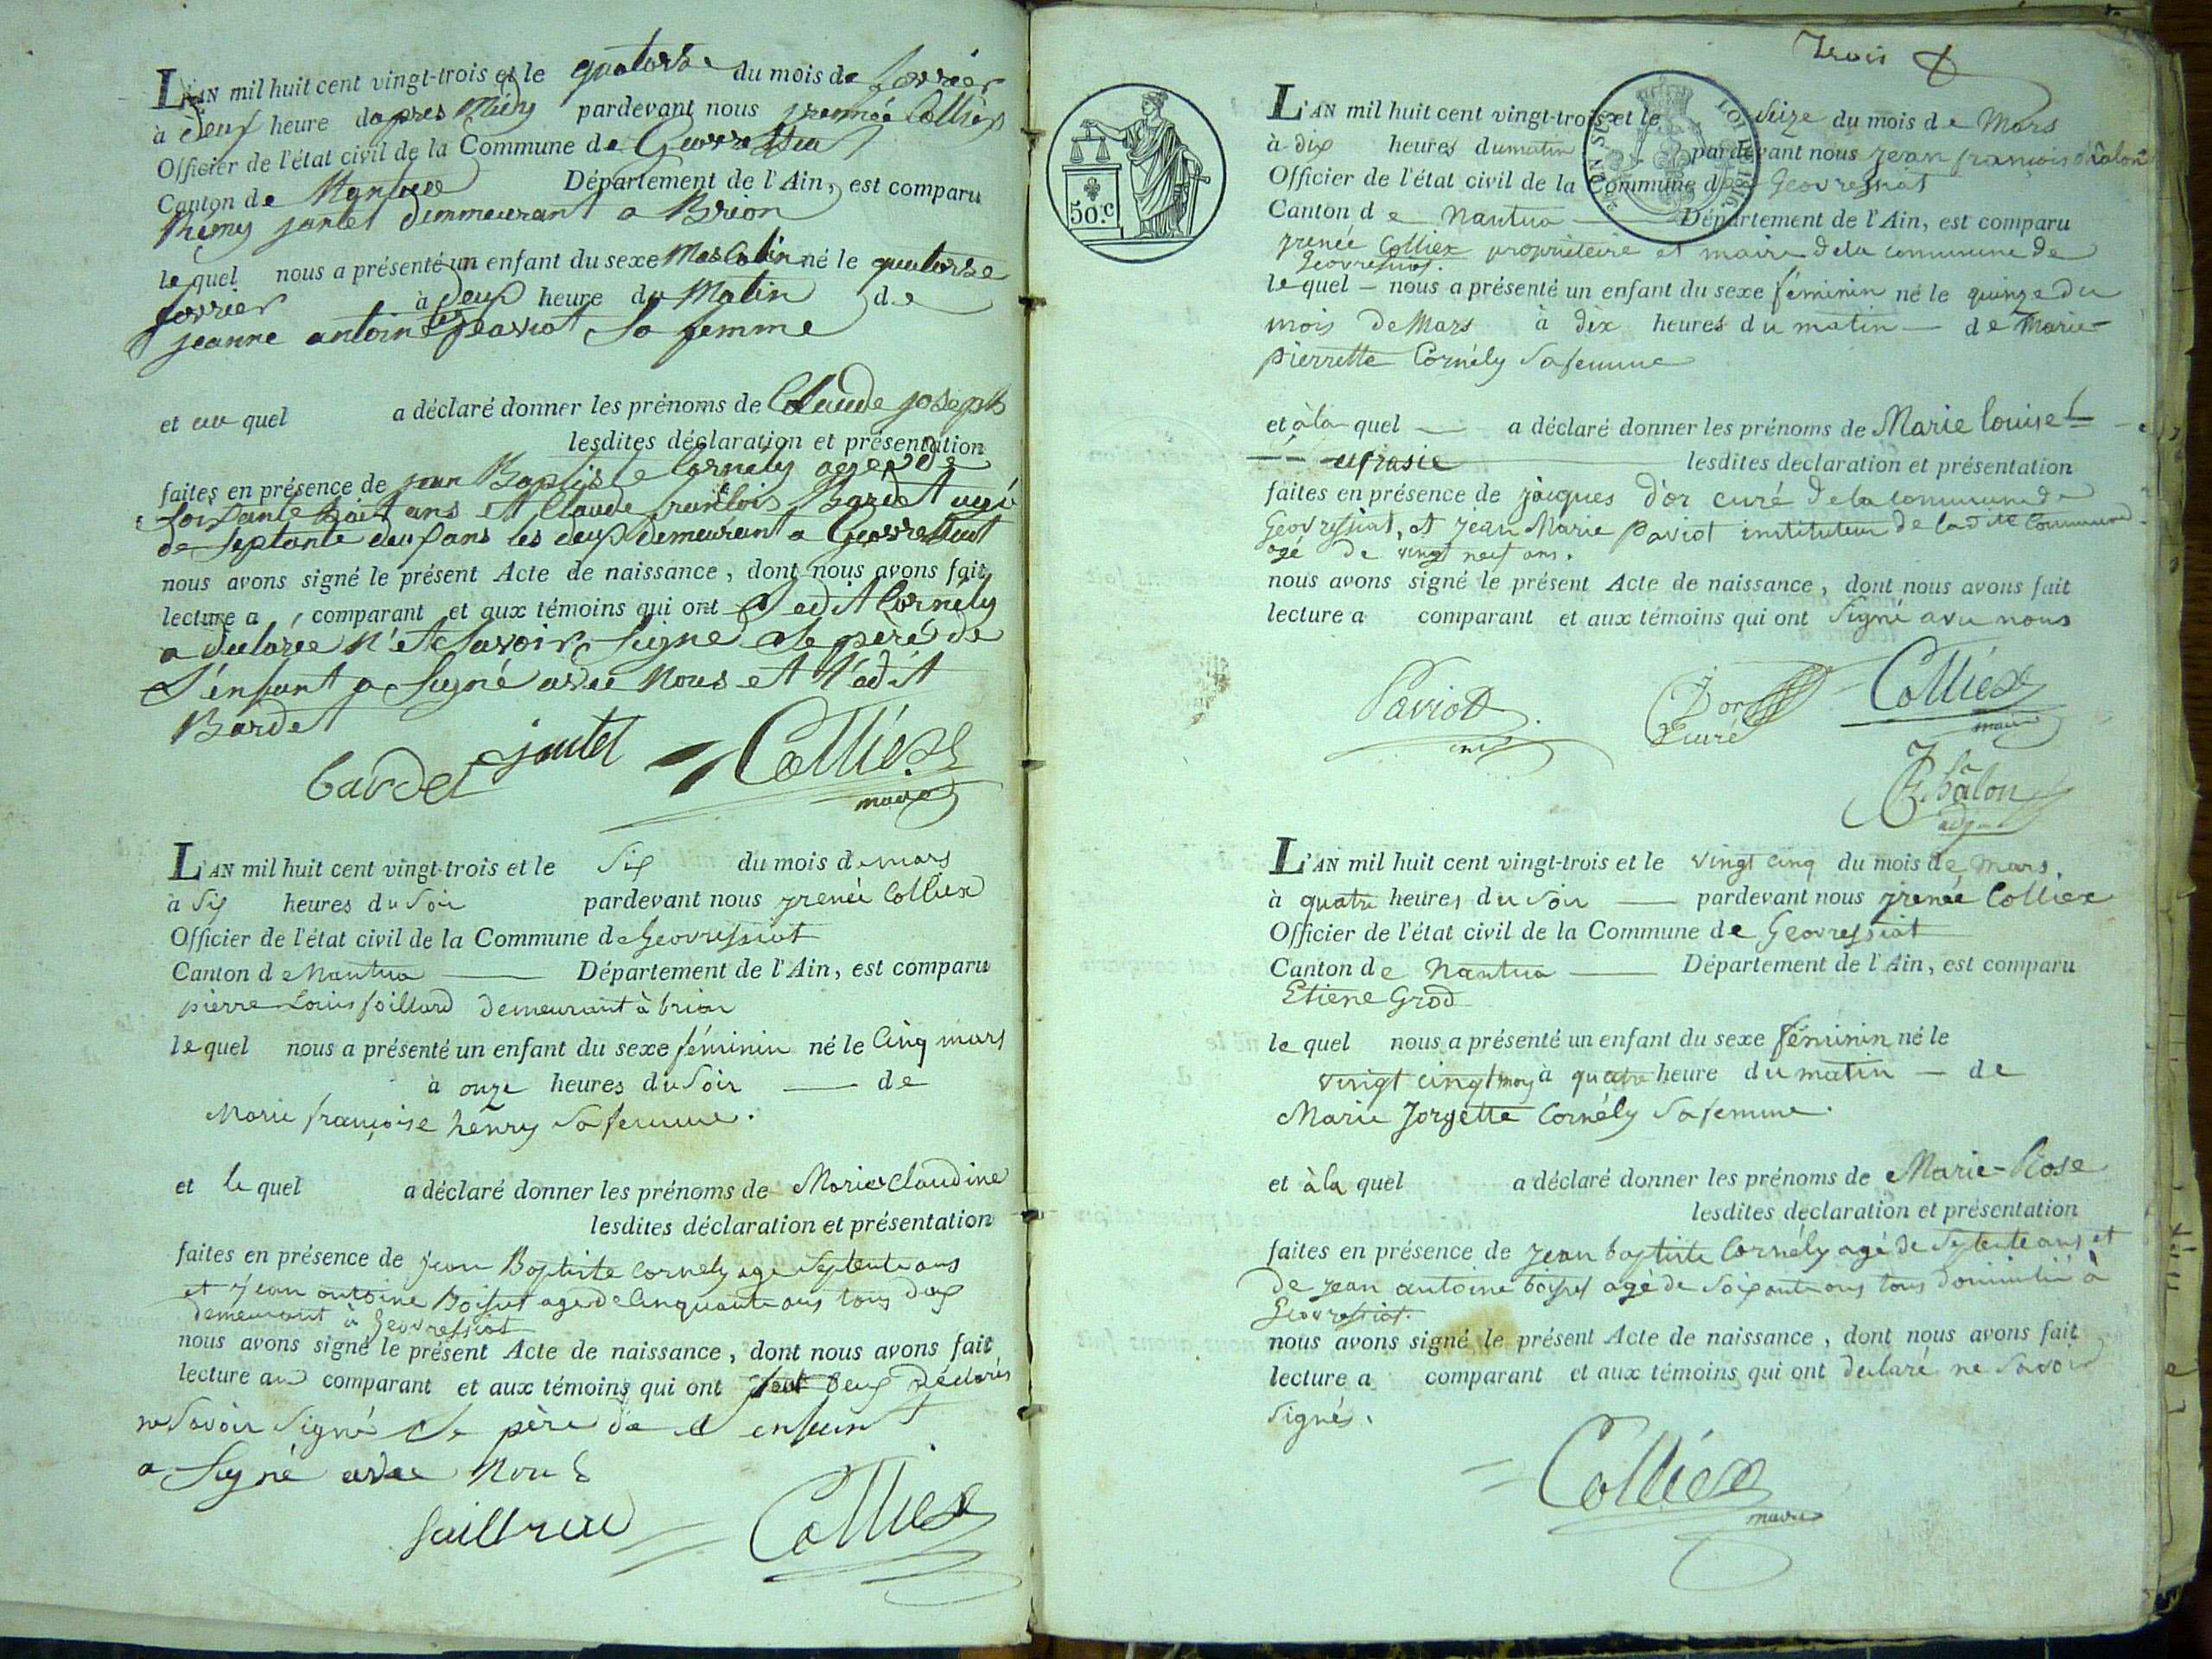 L'AN mil huit cent vingt-trois et le quatorze du mois de fevrier
à deux heure d apres Midy pardevant nous yrennée Colliex
Officier de l'état civil de la Commune de Geovressiat
Canton de Nantua Département de l'Ain, est comparu
Rhemy jantet demmeurant a Brion
le quel nous a présenté un enfant du sexe Masculin né le quatorse
fevrier à deux heure du Matin de
jeanne antoinete paviot sa femme
et au quel a déclaré donner les prénoms de Claude joseph
lesdites déclaration et présentation
faites en présence de jean Baptiste Cornely agée de
soisante huit ans et Claude franсois Bardet agé
de septante deux ans les deux demeurant a Geovressiat
nous avons signé le présent Acte de naissance, dont nous avons fait
lecture a comparant et aux témoins qui ont Ledit Cornely
a declarée n'et savoir signé le père de
L'énfant a signé avec nous et l'édit
Bardet
bardet jantet Colliex
maire
L'AN mil huit cent vingt-trois et le six du mois de mars
à six heures du soir pardevant nous yrenée Colliex
Officier de l'état civil de la Commune de Geovressiat
Canton de Nantua Département de l'Ain, est comparu
pierre Louis foillard demeurant à brion
le quel nous a présenté un enfant du sexe féminin né le cinq mars
à onze heures du soir de
Marie françoise henry sa femme.
et le quel a déclaré donner les prénoms de Marie Claudine
lesdites déclaration et présentation
faites en présence de jean Baptiste Cornely age septente ans
et jean antoine Boisset age de cinquante ans tous deux
demeurant à Geovressiat
nous avons signé le présent Acte de naissance, dont nous avons fait
lecture au comparant et aux témoins qui ont deux déclarés
ne savoir signé le père de l enfant
a signé avec nous
Colliex
trois
50.c
LOI DE 1816.
L'AN mil huit cent vingt-trois et le seize du mois de Mars
à dix heures du matin pardevant nous jean françois châlon
Officier de l'état civil de la Commune de Geovressiat
Canton de Nantua Département de l'Ain, est comparu
yrenée Colliex propriétaire et maire de la commune de
Geovressiat.
le quel nous a présenté un enfant du sexe féminin né le quinze du
mois de Mars à dix heures du matin de Marie
pierrette Cornély sa femme
et à la quel a déclaré donner les prénoms de Marie louise
eufrasie lesdites déclaration et présentation
faites en présence de jacques d'or curé de la commune de
Geovressiat, et jean Marie Paviot instituteur de ladite Commune
agé de vingt neuf ans.
nous avons signé le présent Acte de naissance, dont nous avons fait
lecture a comparant et aux témoins qui ont signé avec nous
Paviot Dor Colliex
curé maire
Châlon
adj
L'AN mil huit cent vingt-trois et le vingt cinq du mois de Mars
à quatre heures du soir pardevant nous yrenée Colliex
Officier de l'état civil de la Commune de Geovressiat
Canton de Nantua Département de l'Ain, est comparu
Etiene Grod
le quel nous a présenté un enfant du sexe féminin né le
vingt cinq mars à quatre heure du matin de
Marie Jorgette Cornély sa femme.
et à la quel a déclaré donner les prénoms de Marie-Rose
lesdites déclaration et présentation
faites en présence de jean baptiste Cornély agé de septente ans et
de jean antoine boisset agé de soixante ans tous domicilié à
Geovressiat.
nous avons signé le présent Acte de naissance, dont nous avons fait
lecture a comparant et aux témoins qui ont déclaré ne savoir
signés.
Colliex
maire